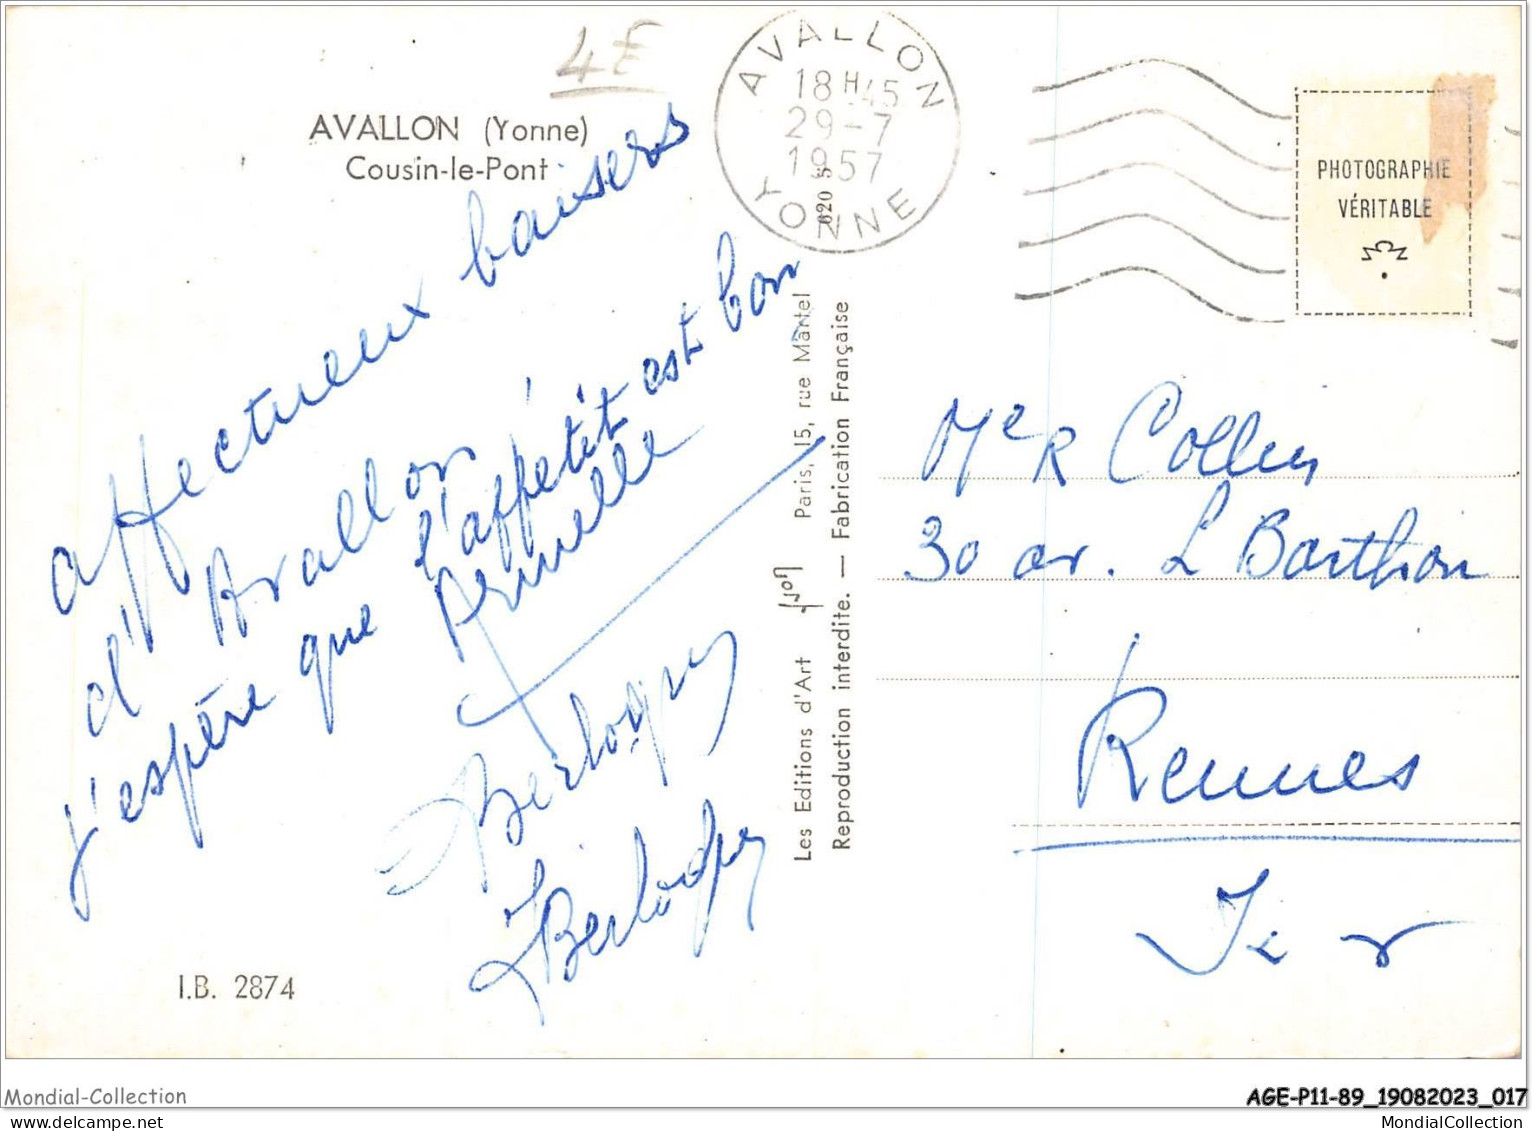 4E
AVALLON (Yonne)
Cousin-le-Pont
AVALLON
18H45
29-7
1957
YONNE
620 S
PHOTOGRAPHIE
VÉRITABLE
affectueux baisers
d'Avallon
j'espère que l'appétit est bon
Les Editions d'Art YVON Paris, 15, rue Martel
Reproduction interdite. — Fabrication Française
Me R Collin
30 av. L Barthou
Rennes
I.B. 2874
Mondial-Collection
AGE-P11-89_19082023_017
www.mondial-collection.com
MondialCollection